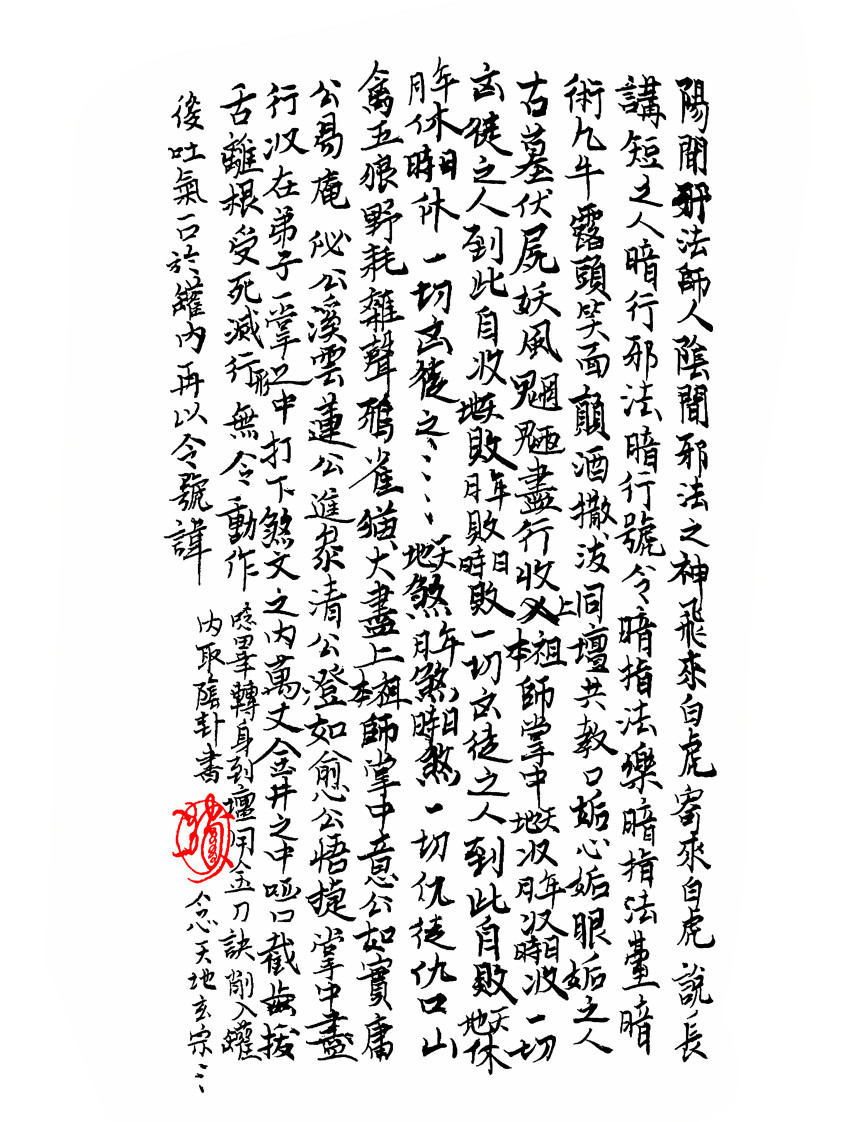 陽間邪法師人陰間邪法之神飛來白虎寄來白虎說長
講短之人暗行邪法暗行號令暗指法樂暗指法臺暗
術九牛露頭笑面顛酒撒潑同壇共教口姤心姤眼姤之人
古墓伏屍妖風魍魎盡行收上祖本師掌中天收地收年收月收日收時收一切
凶徒之人到此自收天敗地敗年敗月敗日敗時敗一切凶徒之人到此自敗天休地休
年休月休日休時休一切凶徒之〻〻〻天煞地煞年煞月煞日煞時煞一切仇徒仇口山
禽五猖野耗雜聲鴉雀猫犬盡上祖本師掌中意公如實庸
公易庵佖公溪雲蓮公進泰清公澄如愈公悟捷掌中盡
行收在弟子一掌之中打下煞文之內萬丈金井之中啞口截齒拔
舌離根受死滅行形無令動作 唸畢轉身到壇用金刀訣削入罐
後吐氣一口於罐內再以令號諱 內取陰卦書 念天地玄宗〻〻